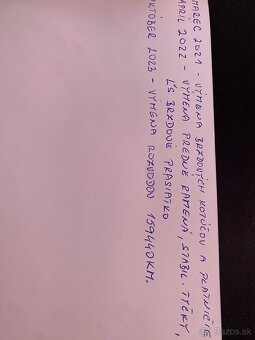 MAREC 2021 - VÝMENA BRZDOVÝCH KOTÚČOV A PLATNIČIE
APRÍL 2022 - VÝMENA PREDNÉ RAMENÁ, STABIL. TYČKY,
ĽS BRZDOVÉ PRASIATKO
OKTÓBER 2023 - VÝMENA ROZVODOV 159440KM.
bazos.sk